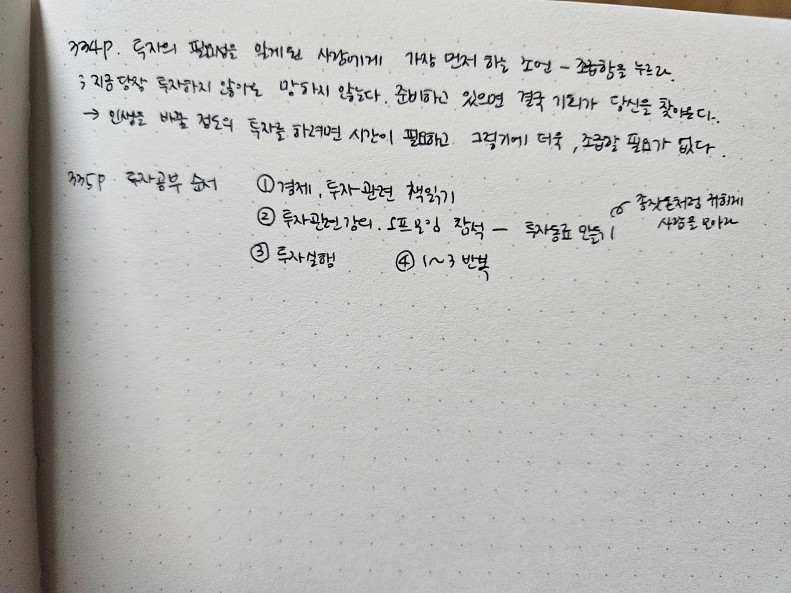 334p. 투자의 필요성을 알게된 사람에게 가장 먼저 하는 조언 - 조급함을 누르라.
; 지금 당장 투자하지 않아도 망하지 않는다. 준비하고 있으면 결국 기회가 당신을 찾아온다.
→ 인생을 바꿀 정도의 투자를 하려면 시간이 필요하고 그렇기에 더욱, 조급할 필요가 없다.
335p. 투자공부 순서 ① 경제, 투자 관련 책읽기
② 투자관련 강의, 오프모임 참석 - 투자동료 만들기
종잣돈처럼 귀하게
사람을 모아라
③ 투자실행 ④ 1~3 반복